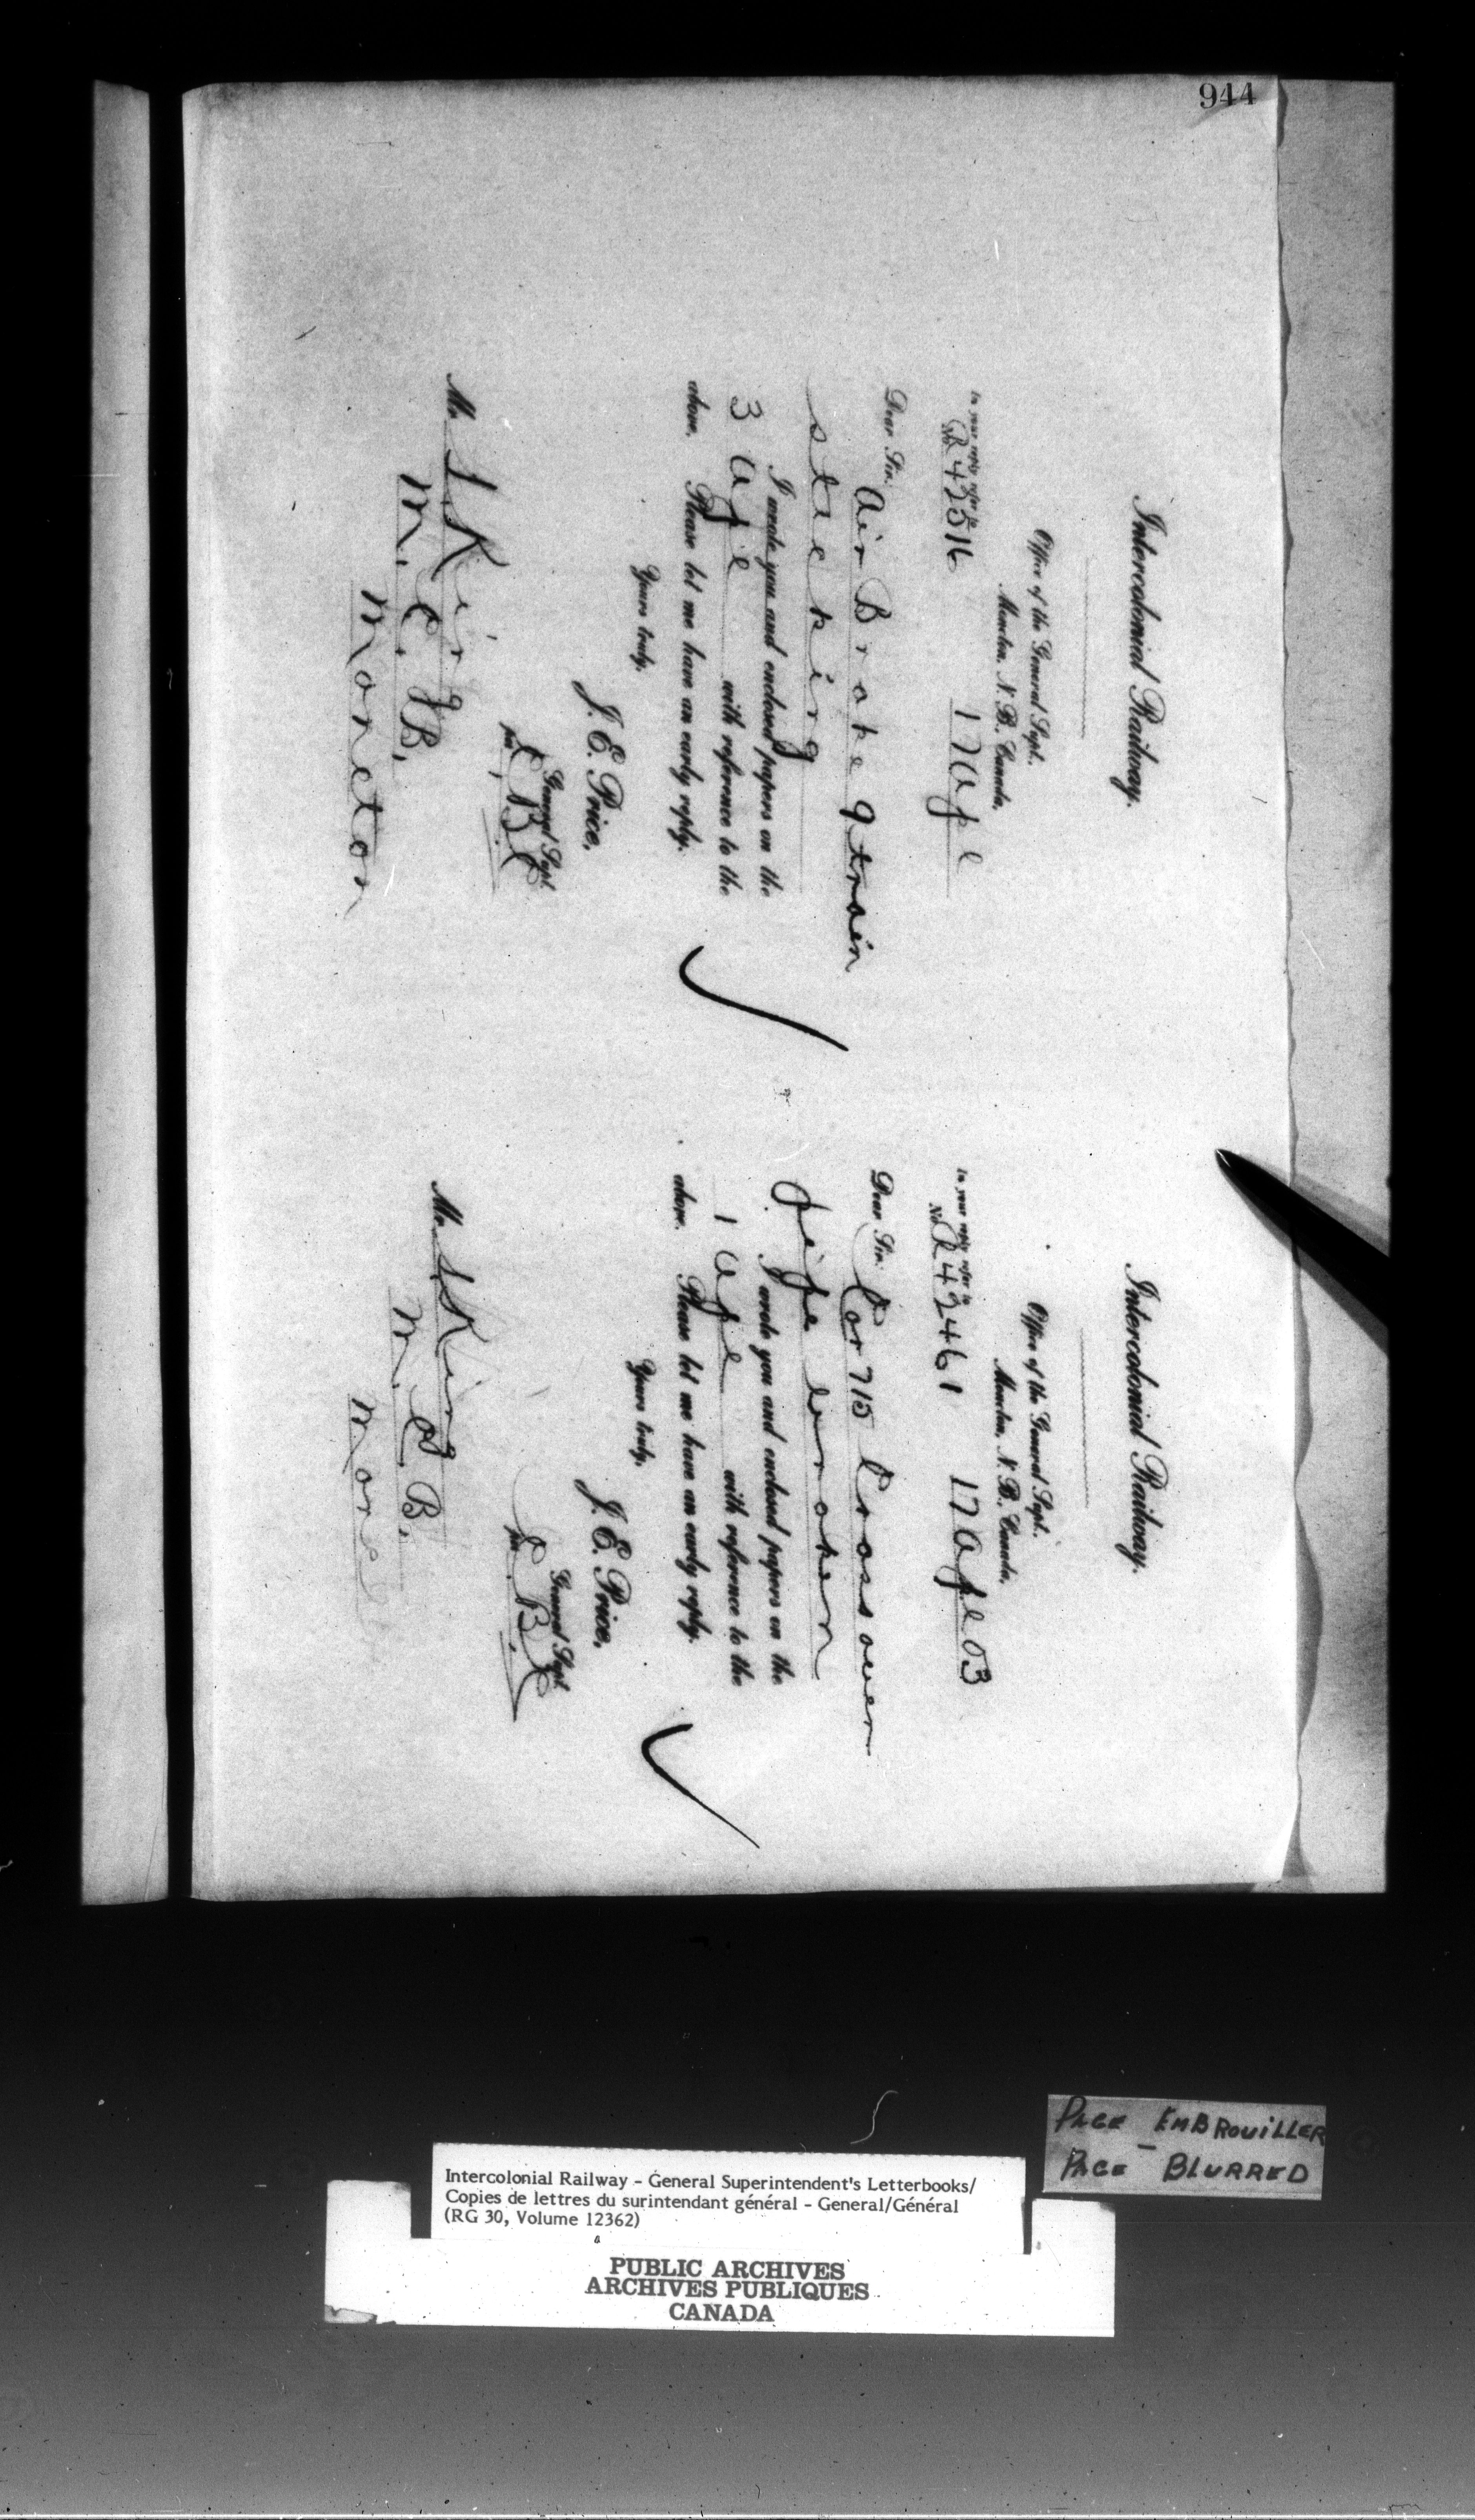 944
Intercolonial Railway.
Office of the General Supt.
Moncton, N. B. Canada,
In your reply refer to
No. R42516 17 Apl
Dear Sir.
Air Brake 9 train
sticking
I wrote you and enclosed papers on the
3 Apl with reference to the
above. Please let me have an early reply.
Yours truly,
J. E. Price,
General Supt.
per
Mr. S King
Moncton
Intercolonial Railway.
Office of the General Supt.
Moncton, N. B. Canada,
In your reply refer to
No. R42461 17 Apl 03
Dear Sir.
Car 715 Crossover
Pipe broken
I wrote you and enclosed papers on the
1 Apl with reference to the
above. Please let me have an early reply.
Yours truly,
J. E. Price,
General Supt.
per
Mr. S King
Monc
PAGE EMBROUILLER
PAGE - BLURRED
Intercolonial Railway - General Superintendent's Letterbooks/
Copies de lettres du surintendant général - General/Général
(RG 30, Volume 12362)
PUBLIC ARCHIVES
ARCHIVES PUBLIQUES
CANADA